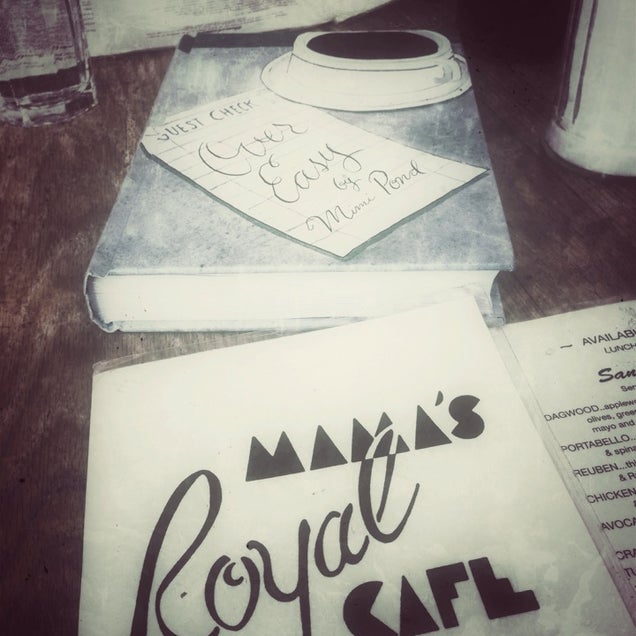 GUEST CHECK
Over
Easy
by
Mimi Pond
MAMA'S
Royal
CAFE
— AVAILAB
LUNCH
San
Ser
DAGWOOD..applew
olives, gree
mayo and
PORTABELLO...
& spina
REUBEN...thi
& R
CHICKEN
AVOCA
CRA